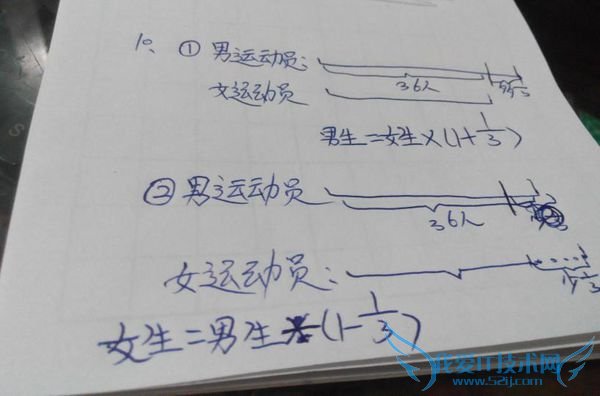 10、① 男运动员：
36人 多1/3
女运动员
男生=女生×(1+1/3)
② 男运动员
36人
女运动员：
少1/3
女生=男生×(1-1/3)
我爱IT技术网
www.52ij.com